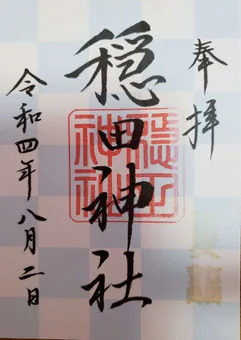 奉拝
穏田神社
令和四年八月二日